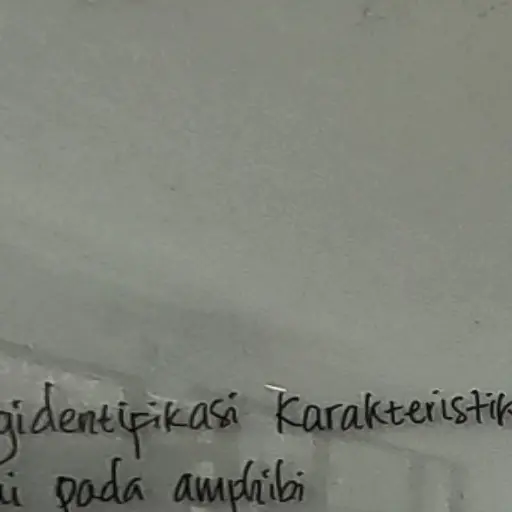 gidentifikasi Karakteristik
i pada amphibi